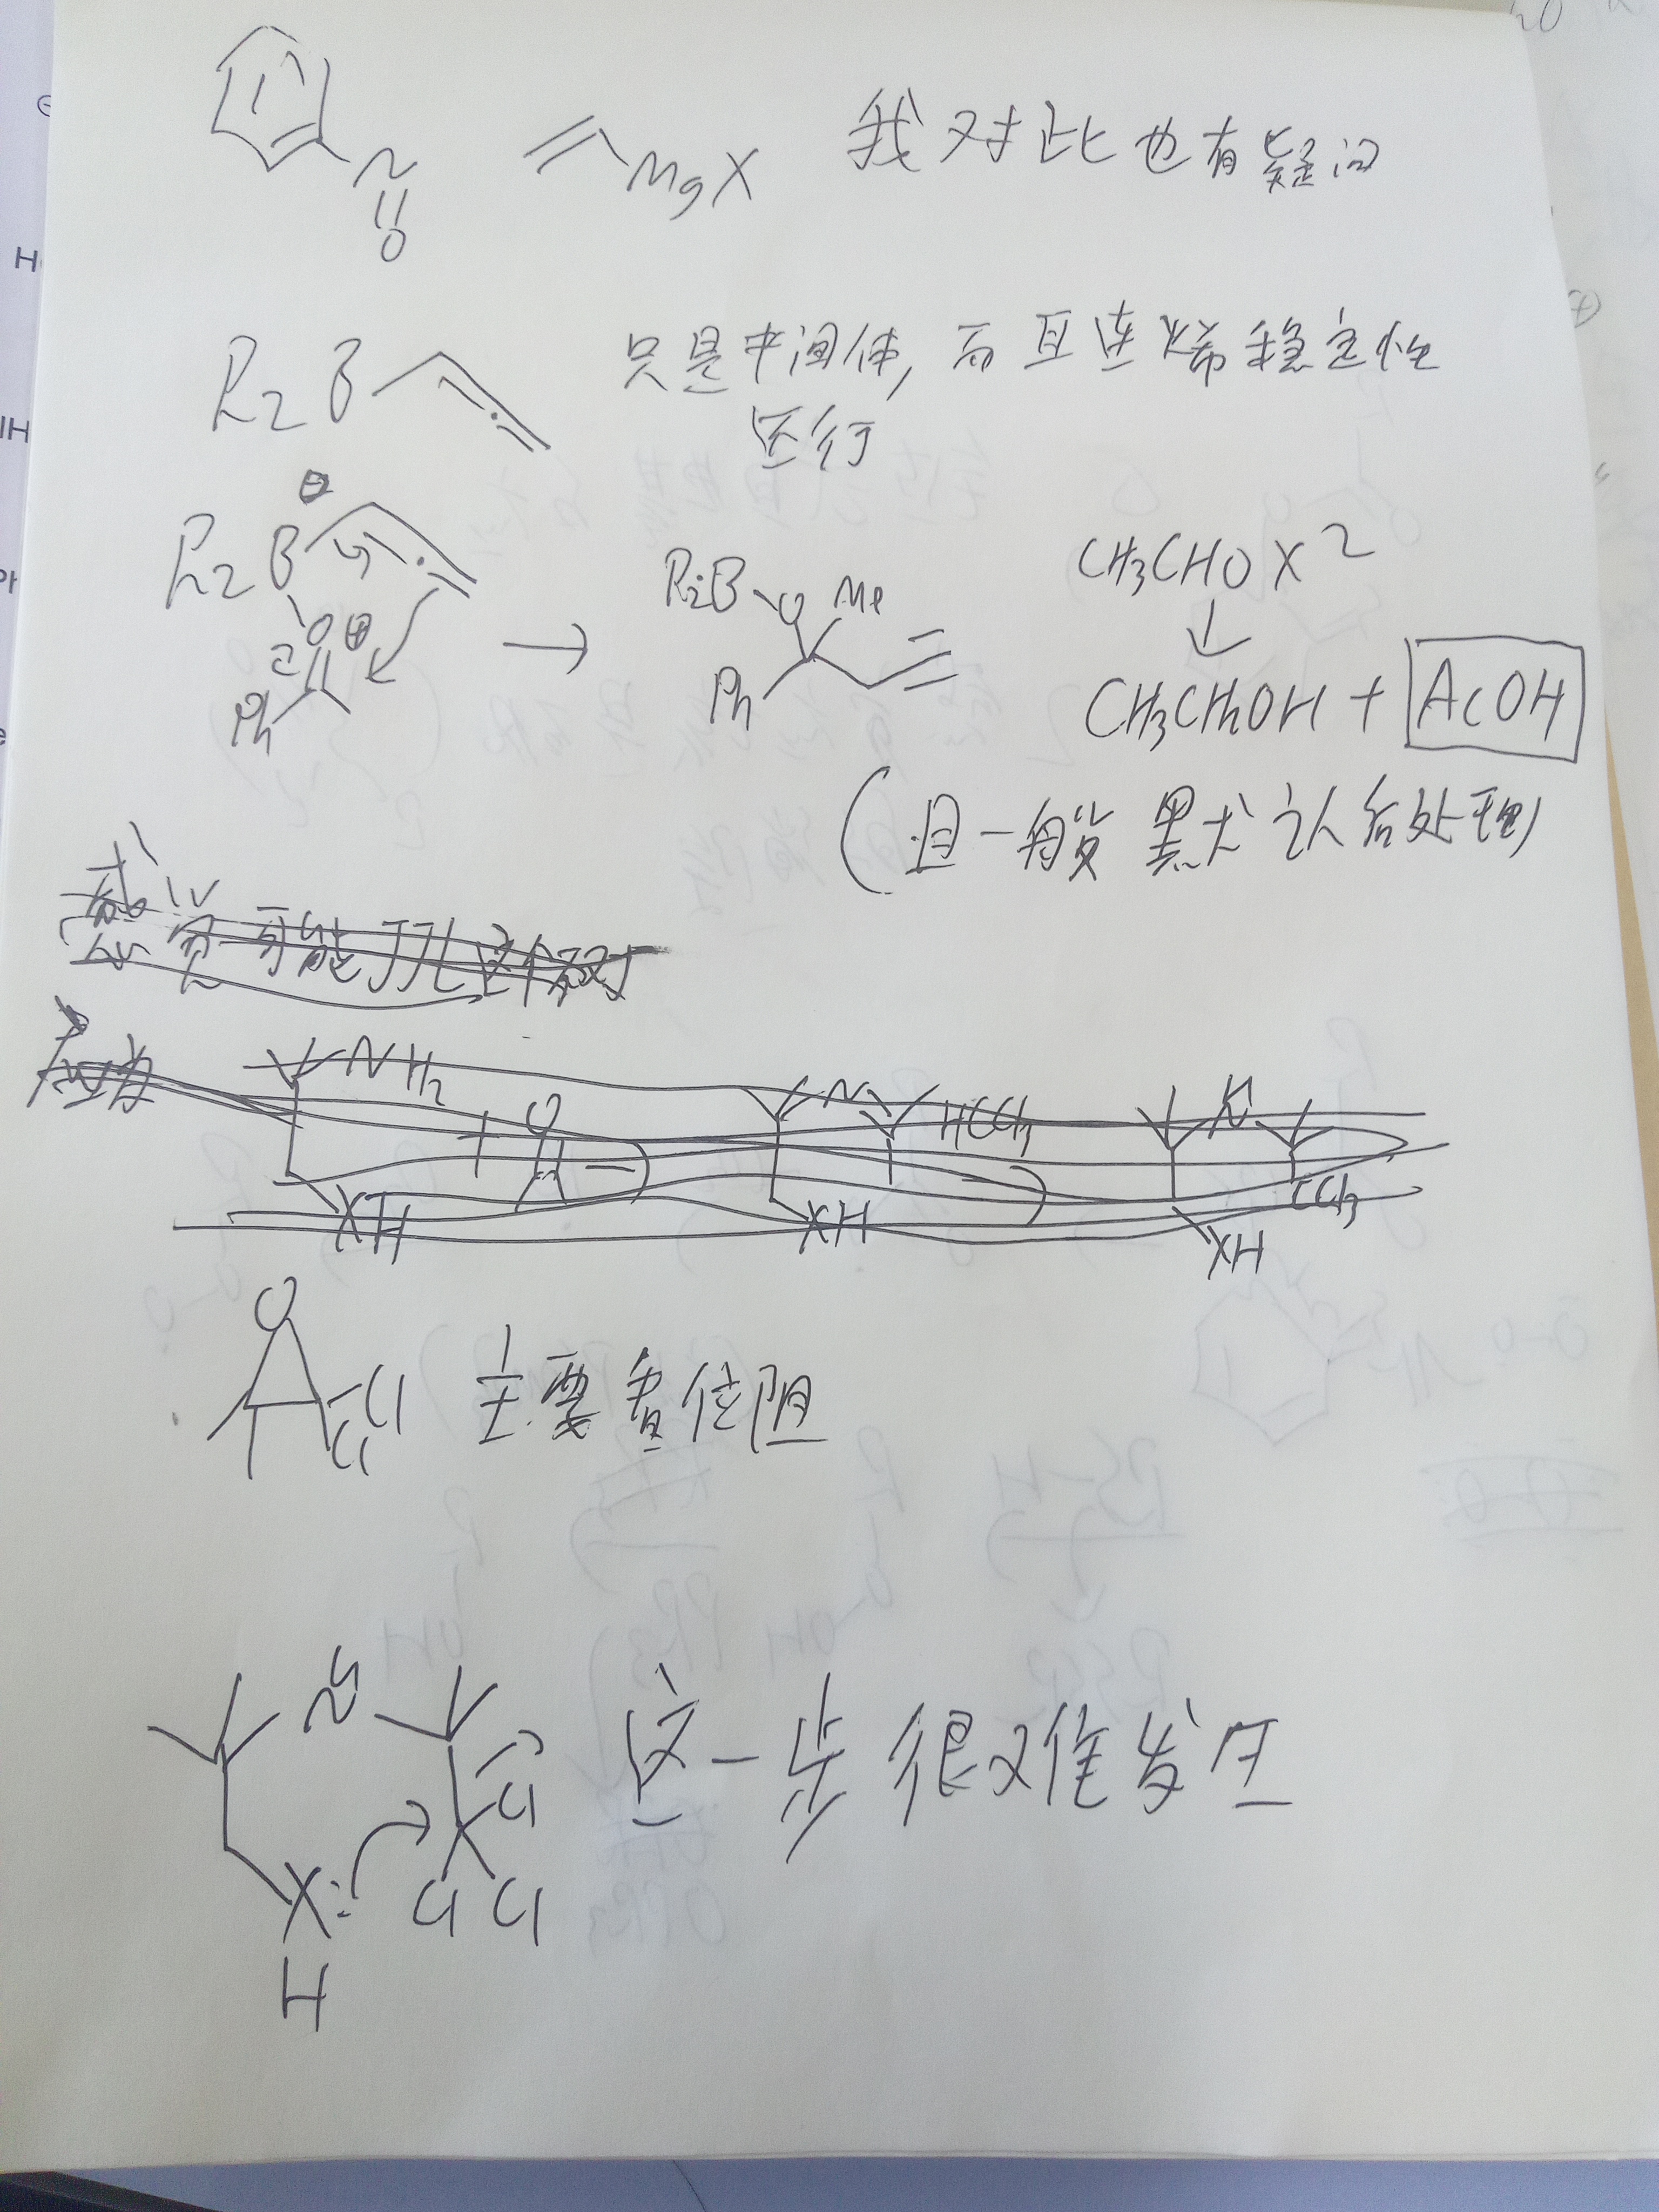 N
O
MgX 我对此也有疑问
R2B 只是中间体,而且连烯稳定性
还行
⊖
R2B
O ⊕
Ph
→
R2B O Me
Ph
CH3CHO X 2
↓
CH3CH2OH + AcOH
(且一般默认后处理)
NH2
XH
+ O
N HCCl3
XH
N
CCl3
XH
O
Cl
Cl 主要看位阻
N
Cl
Cl Cl
X:
H
这一步很难发生